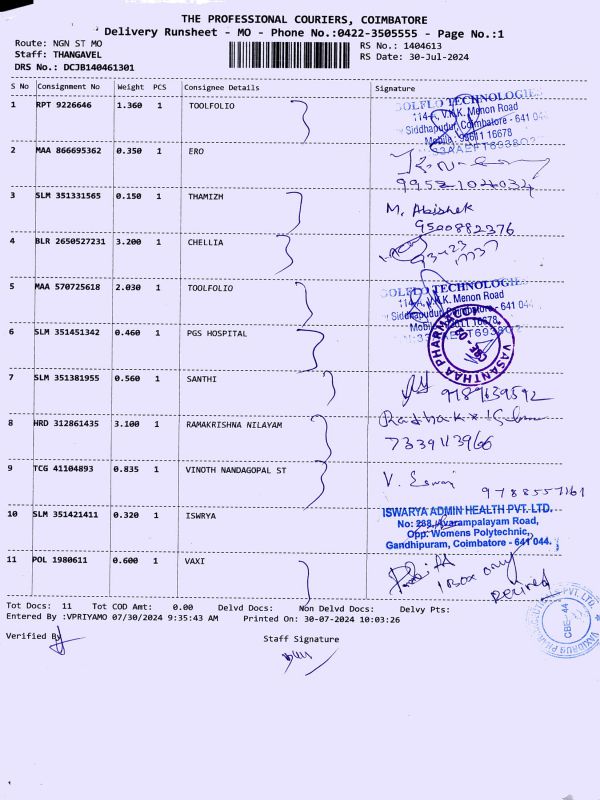 THE PROFESSIONAL COURIERS, COIMBATORE
Delivery Runsheet - MO - Phone No.:0422-3505555 - Page No.:1
Route: NGN ST MO
Staff: THANGAVEL
DRS No.: DCJB140461301
RS No.: 1404613
RS Date: 30-Jul-2024
S No Consignment No Weight PCS Consignee Details Signature
1 RPT 9226646 1.360 1 TOOLFOLIO
SOLFLO TECHNOLOGIE
114-A, V.K.K. Menon Road
Siddhapudur, Coimbatore - 641 04
Mobile : 98611 16678
2 MAA 866695362 0.350 1 ERO
9952104034
3 SLM 351331565 0.150 1 THAMIZH
M. Abishek
9500882376
4 BLR 2650527231 3.200 1 CHELLIA
5 MAA 570725618 2.030 1 TOOLFOLIO
SOLFLO TECHNOLOGIE
114-A, V.K.K. Menon Road
Siddhapudur, Coimbatore - 641 04
6 SLM 351451342 0.460 1 PGS HOSPITAL
VASANTHAA PHARMA
CBE-
7 SLM 351381955 0.560 1 SANTHI
9189639592
8 HRD 312861435 3.100 1 RAMAKRISHNA NILAYAM
7339113966
9 TCG 41104893 0.835 1 VINOTH NANDAGOPAL ST
V. Eswari
9788557161
10 SLM 351421411 0.320 1 ISWRYA
ISWARYA ADMIN HEALTH PVT. LTD.
No: 288, Avarampalayam Road,
Opp. Womens Polytechnic,
Gandhipuram, Coimbatore - 641 044.
11 POL 1980611 0.600 1 VAXI
1 Box only
Tot Docs: 11 Tot COD Amt: 0.00 Delvd Docs: Non Delvd Docs: Delvy Pts:
Entered By :VPRIYAMO 07/30/2024 9:35:43 AM Printed On: 30-07-2024 10:03:26
Verified By
Staff Signature
PVT. LTD.
CBE-44